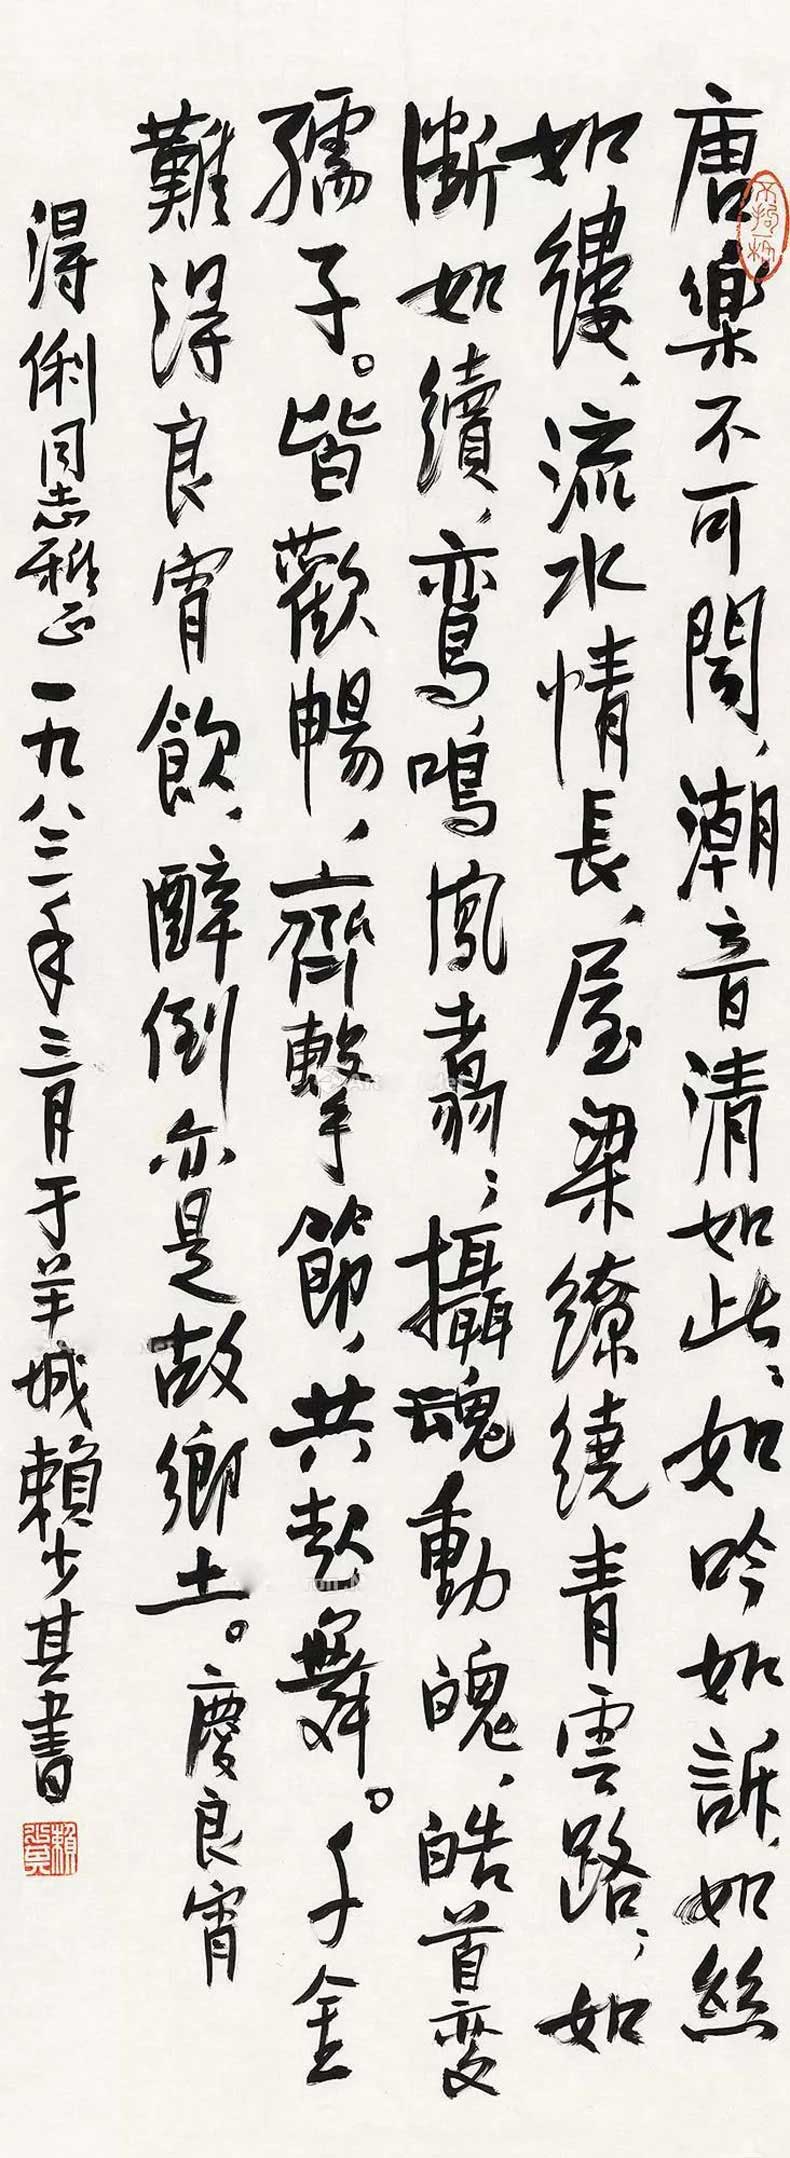 唐樂不可聞、潮音清如此、如吟如訴、如絲
如縷、流水情長、屋梁繚繞青雲路、如
斷如續、鸞鳴鳳翥、攝魂動魄、皓首變
孺子。皆歡暢、齊擊節、共起舞。千金
難得良宵飲、醉倒亦是故鄉土。慶良宵
得俐同志雅正一九八三年三月于羊城賴少其書